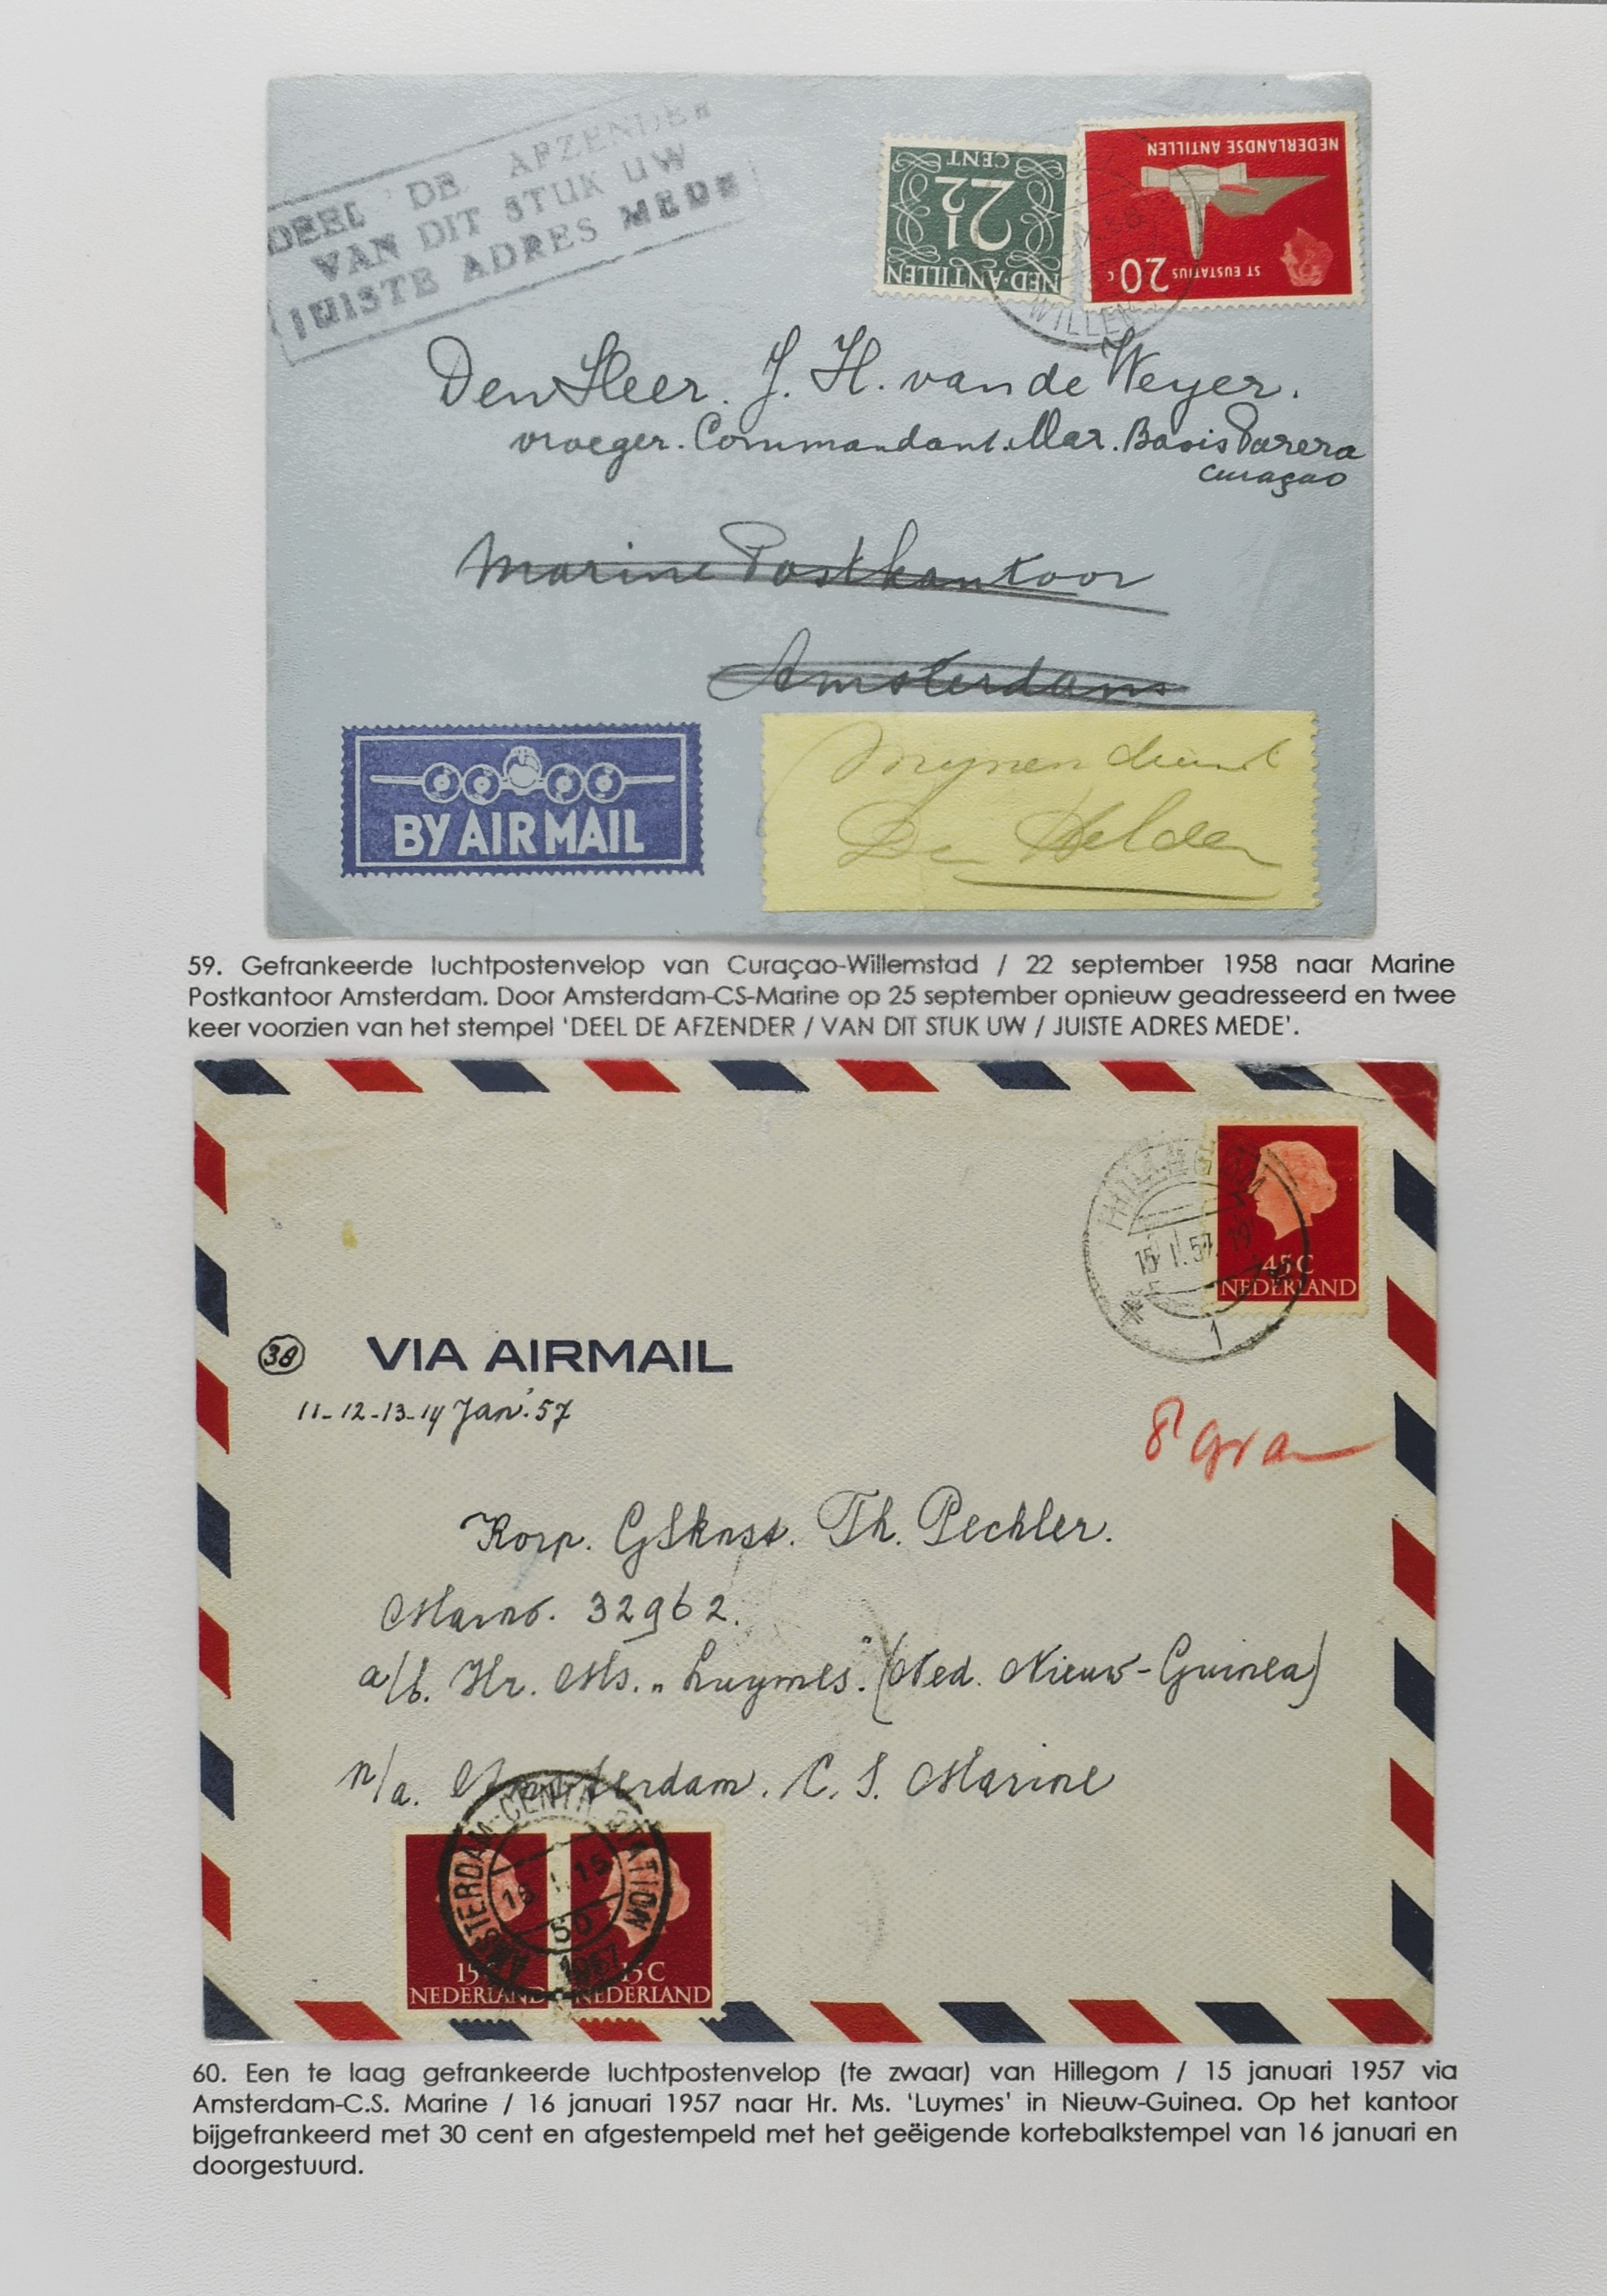 DEEL DE AFZENDER
VAN DIT STUK UW
JUISTE ADRES MEDE
NED·ANTILLEN
2½
CENT
NEDERLANDSE ANTILLEN
ST EUSTATIUS
20 c
WILLEM
Den Heer. J. H. van de Weyer.
vroeger. Commandant. Mar. Basis Parera
Curaçao
Marine Postkantoor
Amsterdam
BY AIR MAIL
Mijnendienst
Den Helder
59. Gefrankeerde luchtpostenvelop van Curaçao-Willemstad / 22 september 1958 naar Marine
Postkantoor Amsterdam. Door Amsterdam-CS-Marine op 25 september opnieuw geadresseerd en twee
keer voorzien van het stempel ‘DEEL DE AFZENDER / VAN DIT STUK UW / JUISTE ADRES MEDE’.
HILLEGOM
15 I. 57. 19
1
45 C
NEDERLAND
38
VIA AIRMAIL
11-12-13-14 Jan. '57
8 gram
Korp. Th. Pechler.
Marnr. 32962.
a/b. Hr. Ms. „Luymes". (Ned. Nieuw-Guinea)
n/a. Amsterdam. C. S. Marine
AMSTERDAM-CENTR. STATION
16 I. 15
50
1957
15 C
NEDERLAND
15 C
NEDERLAND
60. Een te laag gefrankeerde luchtpostenvelop (te zwaar) van Hillegom / 15 januari 1957 via
Amsterdam-C.S. Marine / 16 januari 1957 naar Hr. Ms. ‘Luymes’ in Nieuw-Guinea. Op het kantoor
bijgefrankeerd met 30 cent en afgestempeld met het geëigende kortebalkstempel van 16 januari en
doorgestuurd.